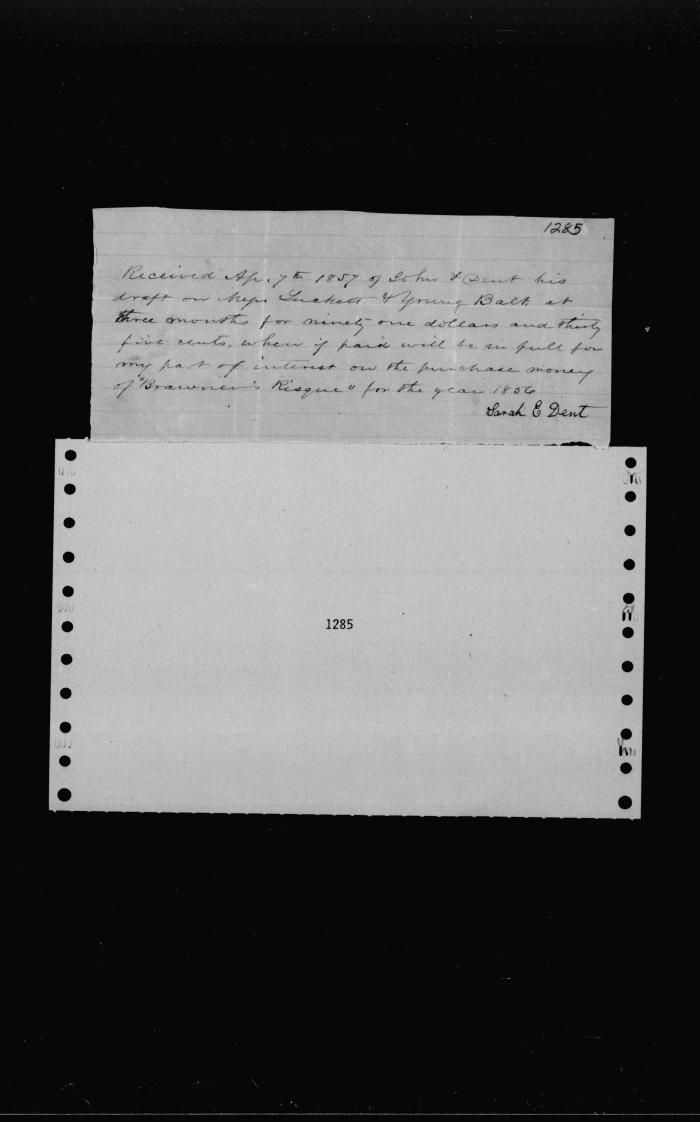 1285
Received Ap. 7th 1857 of John F Dent his
draft on Mess Luckett & Young Balt. at
three months for ninety one dollars and thirty
five cents, when if paid will be in full for
my part of interest on the purchase money
of "Brawner's Risque" for the year 1856
Sarah E Dent
1285